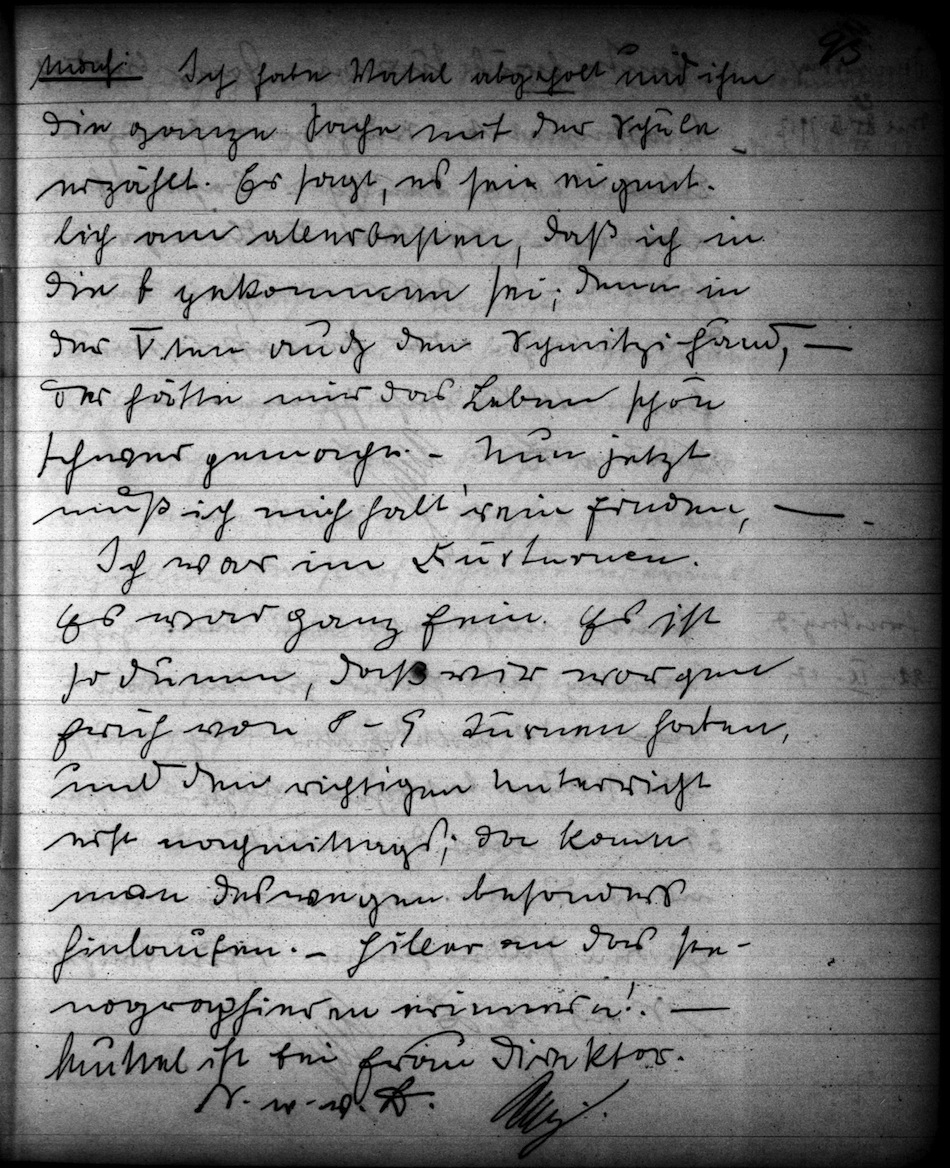 93
Ich habe Vatel abgeholt und ihm
die ganze Sache mit der Schule
erzählt. Er sagt, es sei eigent-
lich am allerbesten, daß ich in
die b gekommen sei; denn in
der V.ten auch den Schmitzi fand, —
Der hätte mir das Leben schön
schwer gemacht. – Nun jetzt
muß ich mich halt rein finden, —.
Ich war im Kürturnen.
Es war ganz fein. Es ist
so dumm, daß wir morgen
früh von 8 – 9 Turnen haben,
und den richtigen Unterricht
erst nachmittags; da kann
man deswegen besonders
hinlaufen. – Hiller an das ste-
nographieren erinnern!. —
Muttel ist bei Frau Direktor.
N. w. v. B.